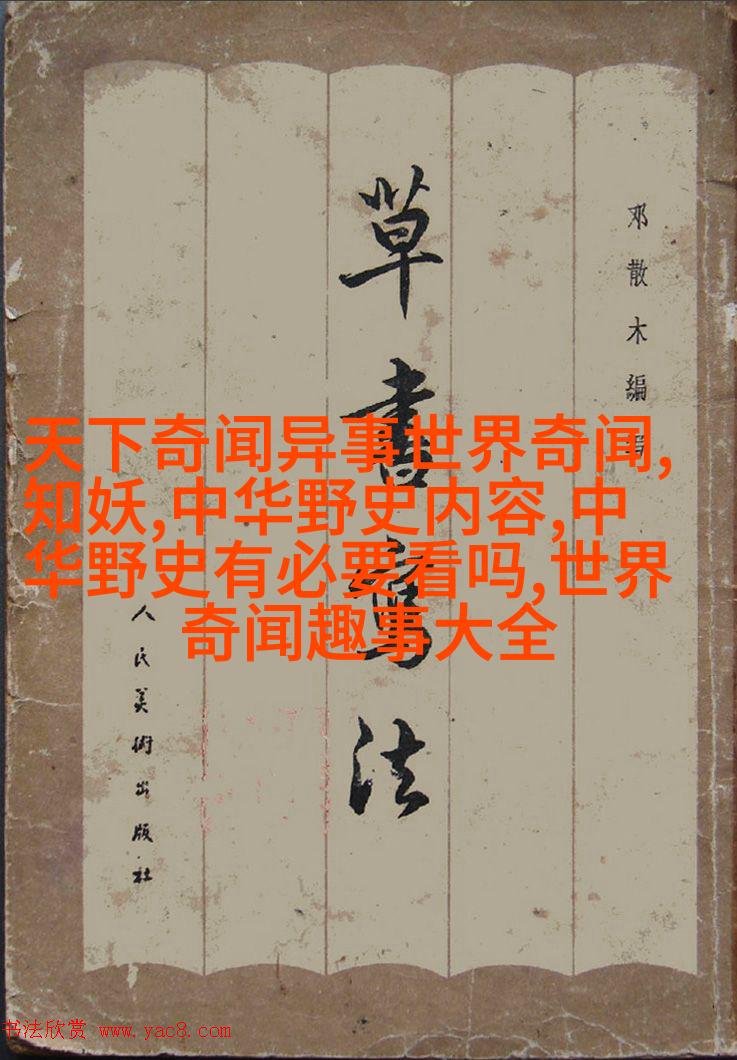 草書寫法
邓散木編寫
人民美術出版社
天下奇闻异事世界奇闻,
知妖,中华野史内容,中
华野史有必要看吗,世界
奇闻趣事大全
书法欣赏 www.yac8.com